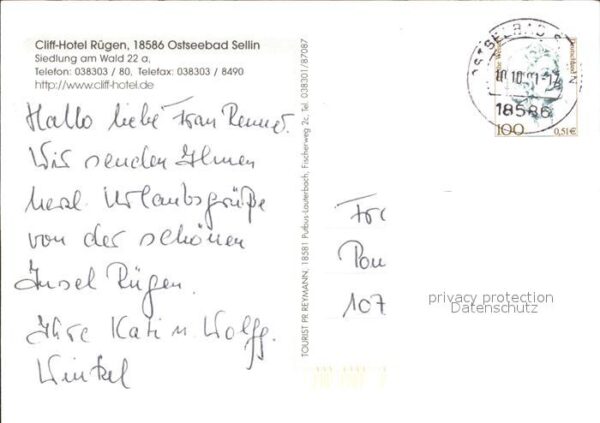 Cliff-Hotel Rügen, 18586 Ostseebad Sellin
Siedlung am Wald 22 a,
Telefon: 038303 / 80, Telefax: 038303 / 8490
http://www.cliff-hotel.de
Hallo liebe Frau Renner.
Wir senden Ihnen
herzl. Urlaubsgrüße
von der schönen
Insel Rügen.
Ihre Kati u. Wolfg.
Winkel
TOURIST PR REYMANN, 18581 Putbus-Lauterbach, Fischerweg 2c, Tel. 038301/87087
OSTSEEBAD
10.10.01-17
18586
Deutschland
100
0,51€
Pou
107
privacy protection
Datenschutz